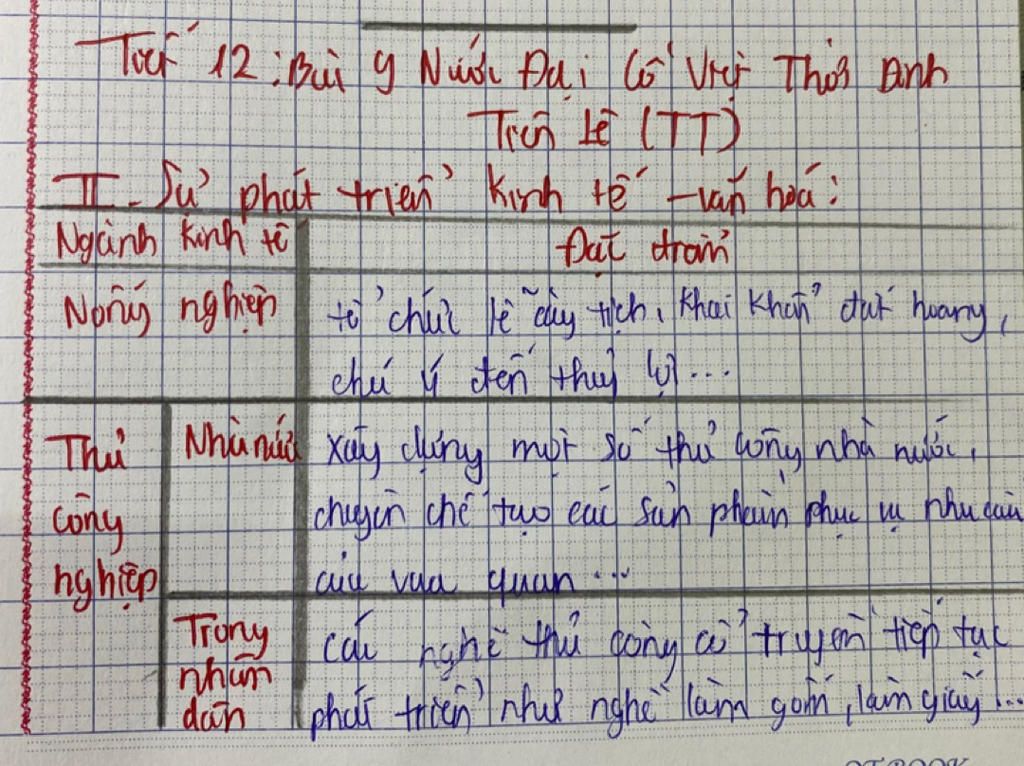 Tiết 12: Bài 9 Nước Đại Cồ Việt Thời Đinh
Tiền Lê (TT)
II - Sự phát triển kinh tế - văn hoá:
Ngành kinh tế Đặc điểm
Nông nghiệp tổ chức lễ cày tịch, khai khẩn đất hoang,
chú ý đến thuỷ lợi...
Thủ công nghiệp Nhà nước Xây dựng một số thủ công nhà nước,
chuyên chế tạo các sản phẩm phục vụ nhu cầu
của vua quan...
Trong nhân dân các nghề thủ công cổ truyền tiếp tục
phát triển như nghề làm gốm, làm giấy...